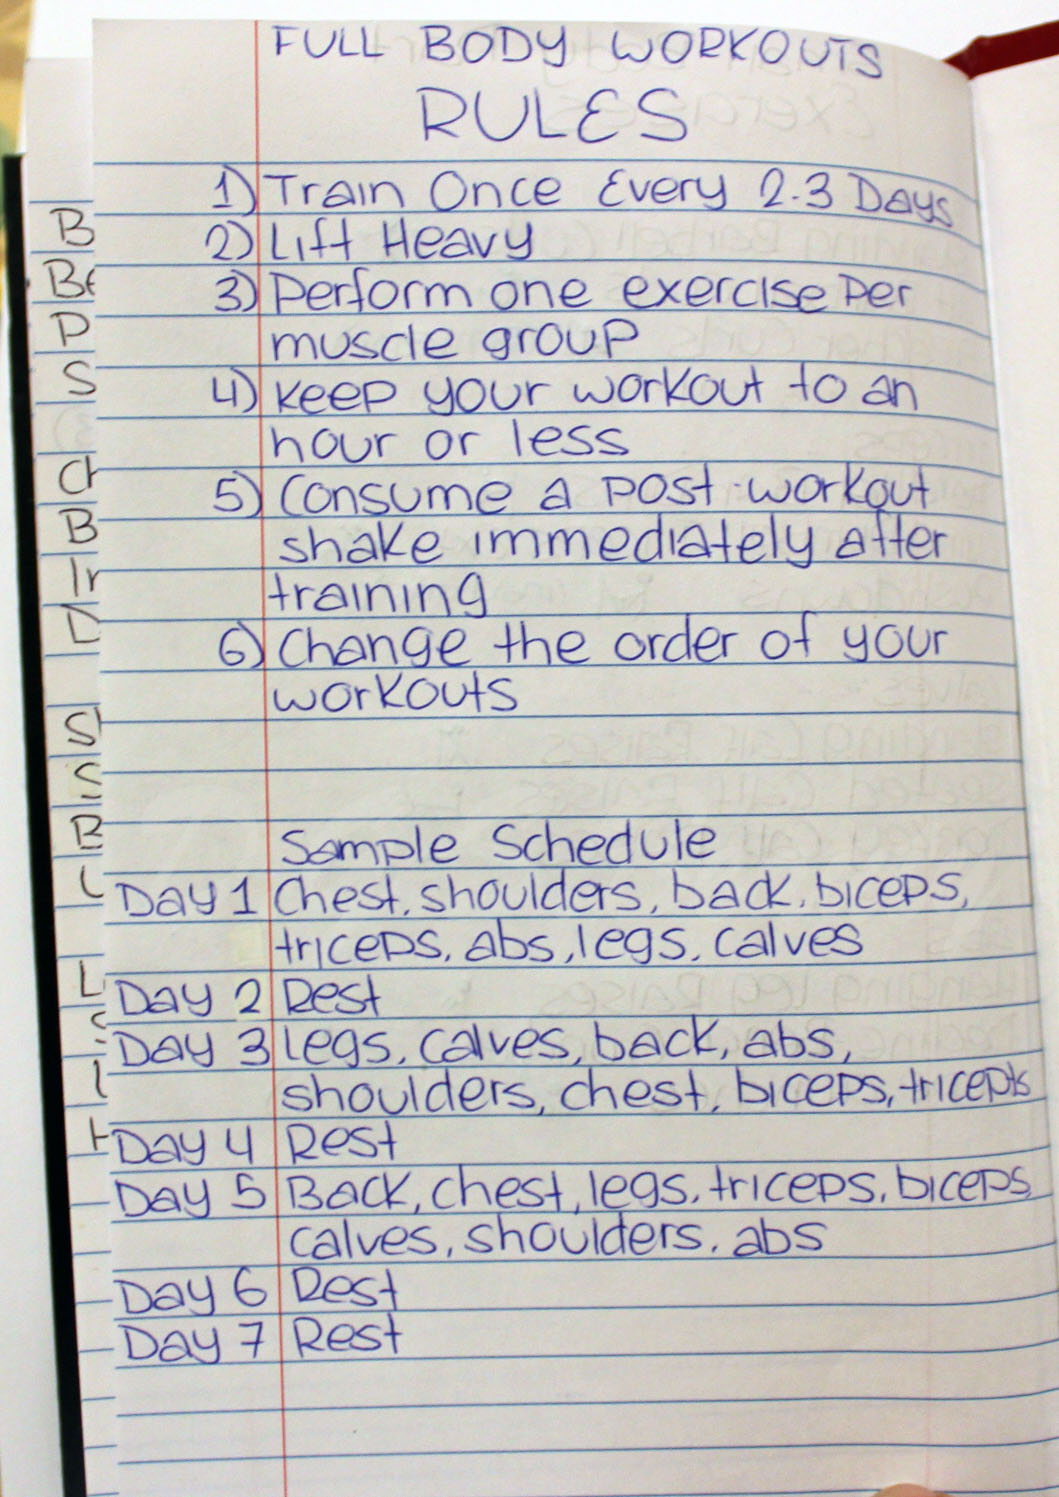 FULL BODY WORKOUTS
RULES
1) Train Once Every 2-3 Days
2) Lift Heavy
3) Perform one exercise per
muscle group
4) Keep your workout to an
hour or less
5) Consume a post-workout
shake immediately after
training
6) Change the order of your
workouts
Sample Schedule
Day 1 Chest, shoulders, back, biceps,
triceps, abs, legs, calves
Day 2 Rest
Day 3 legs, calves, back, abs,
shoulders, chest, biceps, triceps
Day 4 Rest
Day 5 Back, chest, legs, triceps, biceps
calves, shoulders, abs
Day 6 Rest
Day 7 Rest